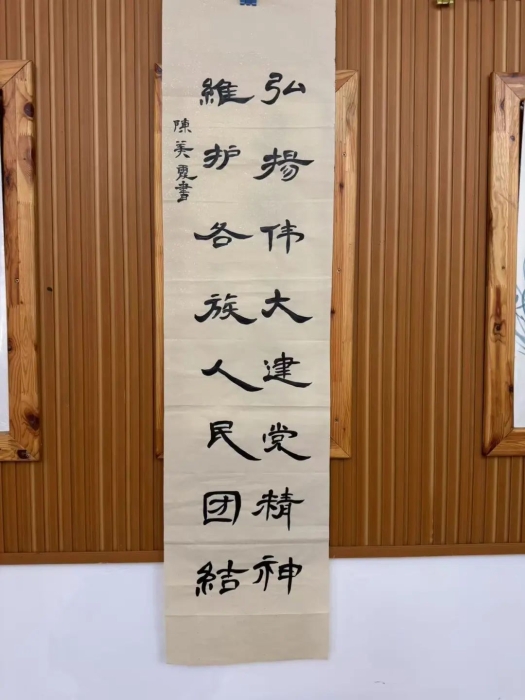 弘揚伟大建党精神
維护各族人民团結
陳美霞書